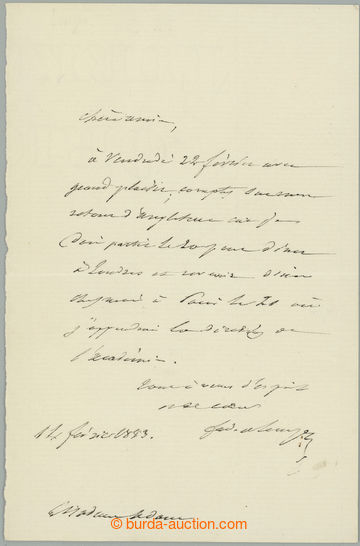 Chère amie,
à Vendredi 22 février avec
grand plaisir, comptez sur mon
retour d'Angleterre car je
dois partir le 20 pour dîner
à Londres et revenir
à Paris le 21 où
j'apprendrai de
l'Académie.
Tout à vous d'esprit
et de cœur
14 février 1883.
Madame Adam
burda-auction.com